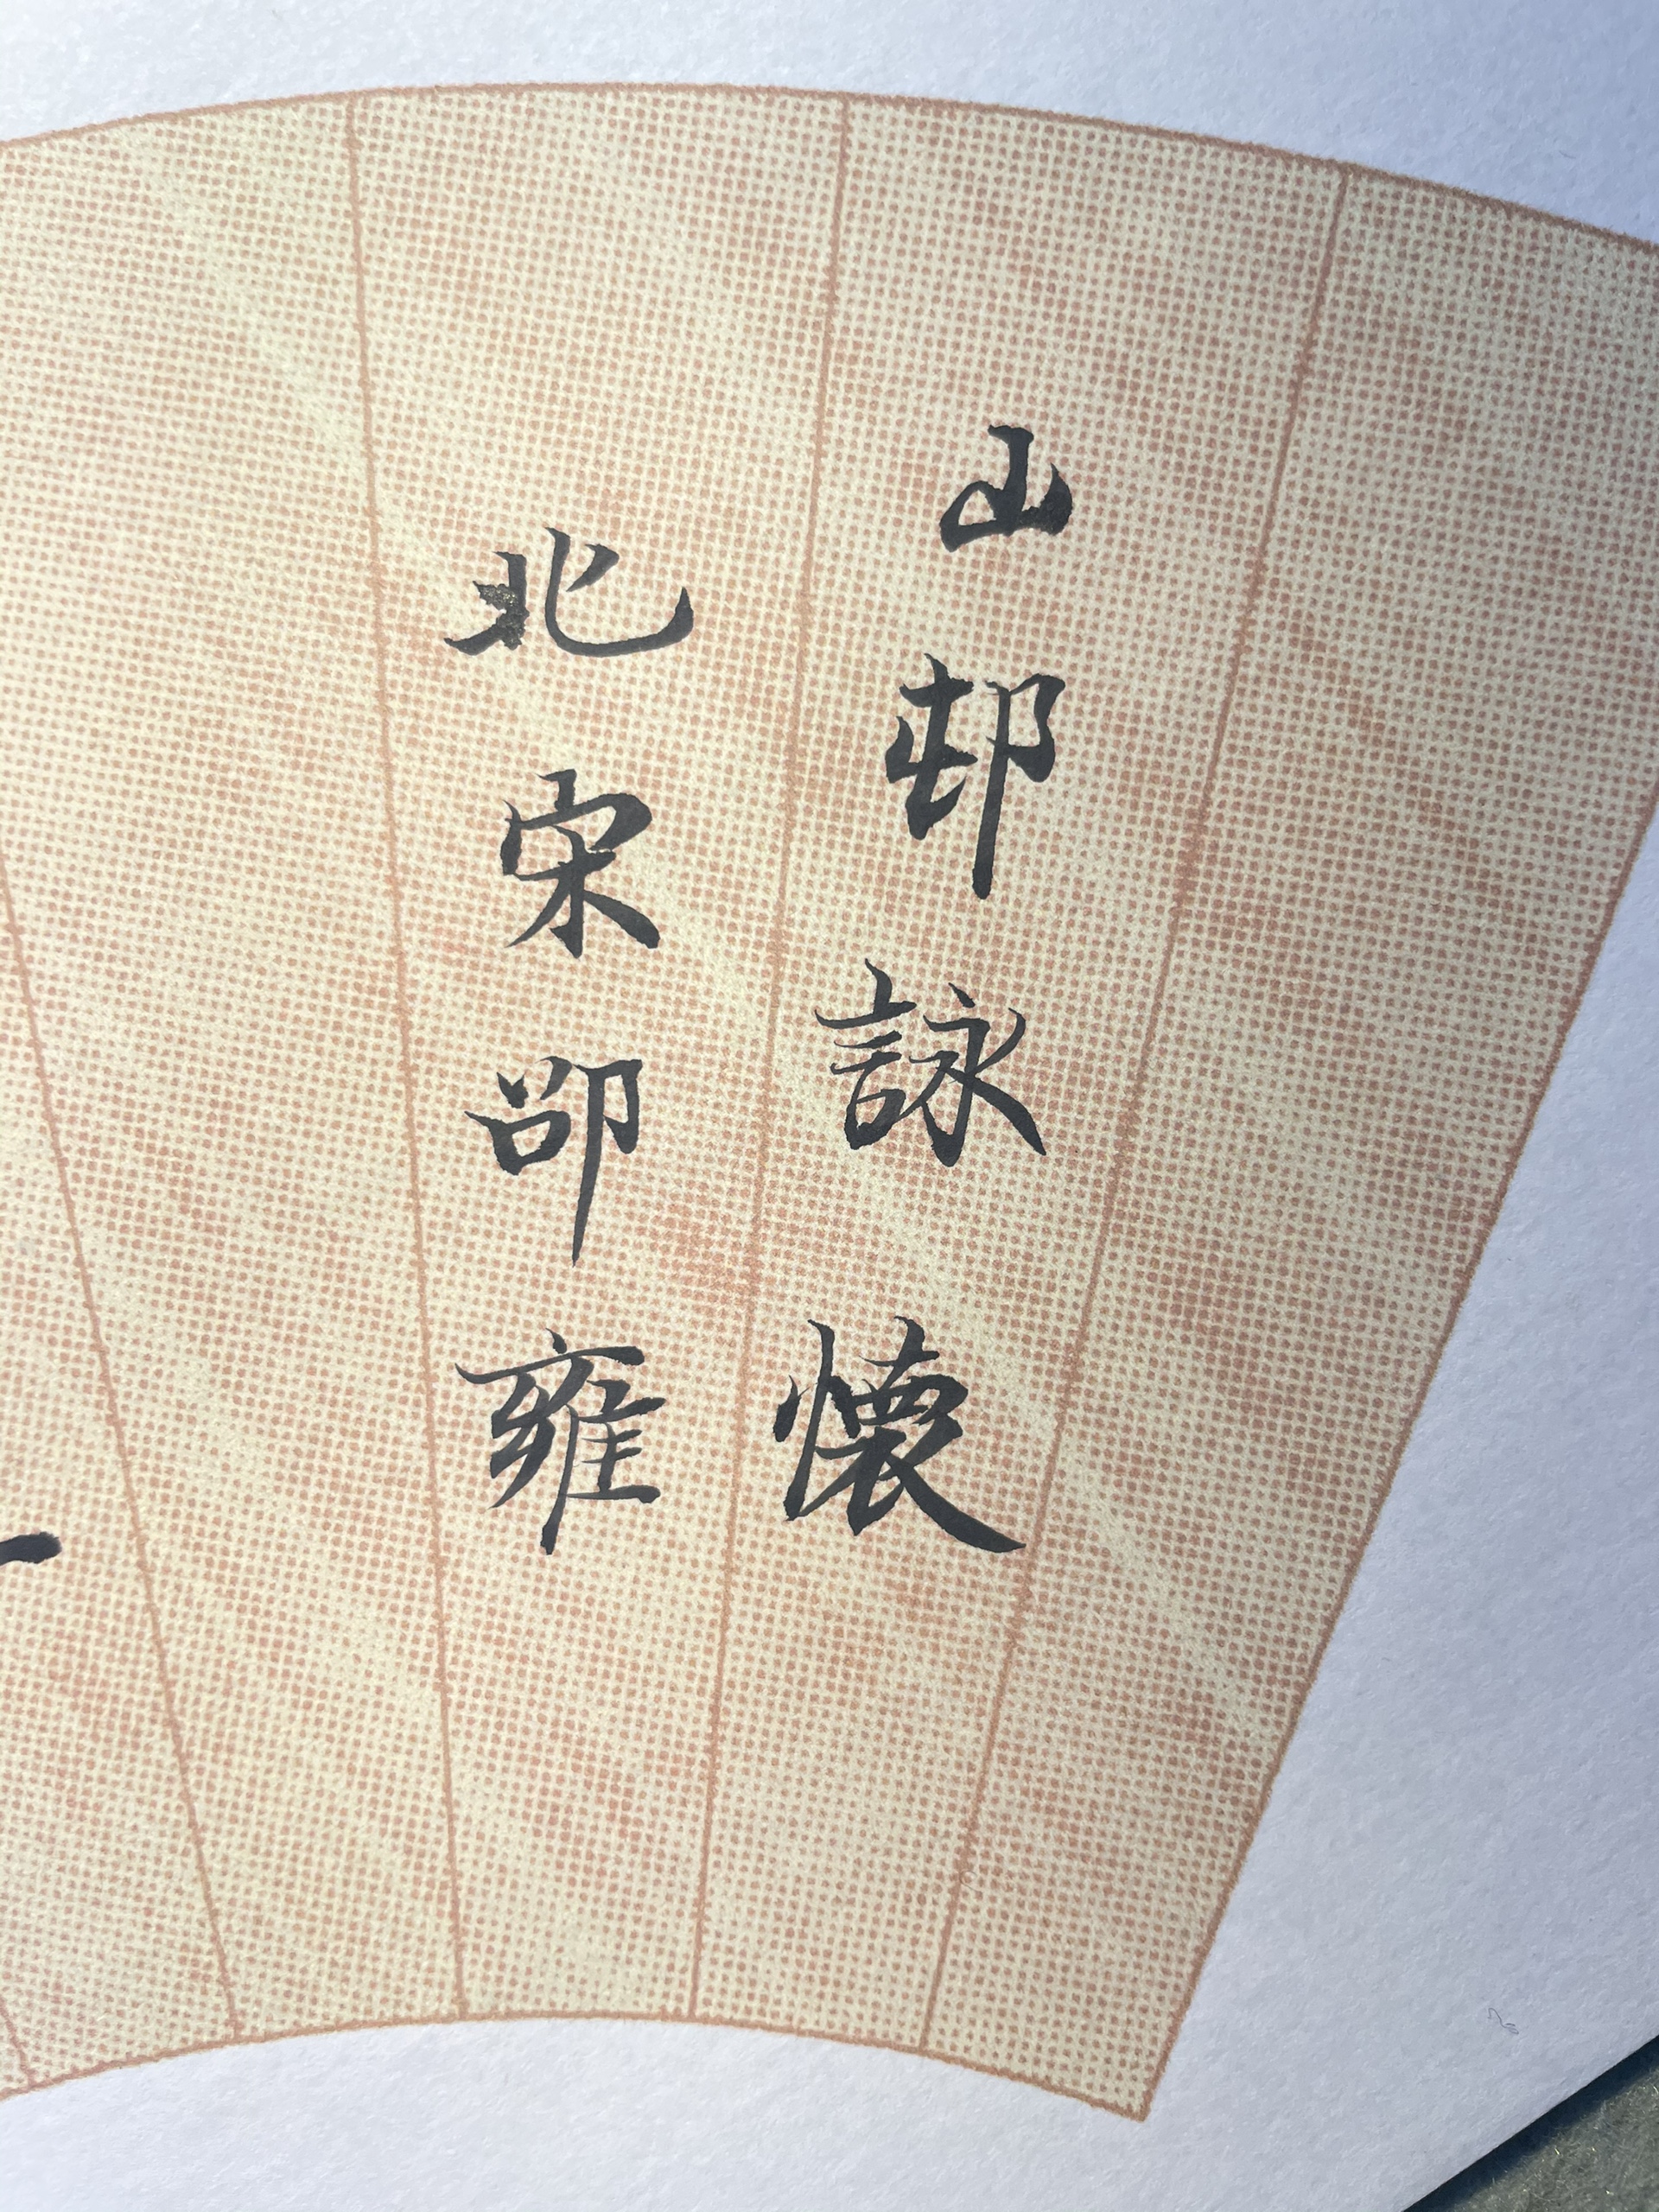 山邨詠懷
北宋邵雍